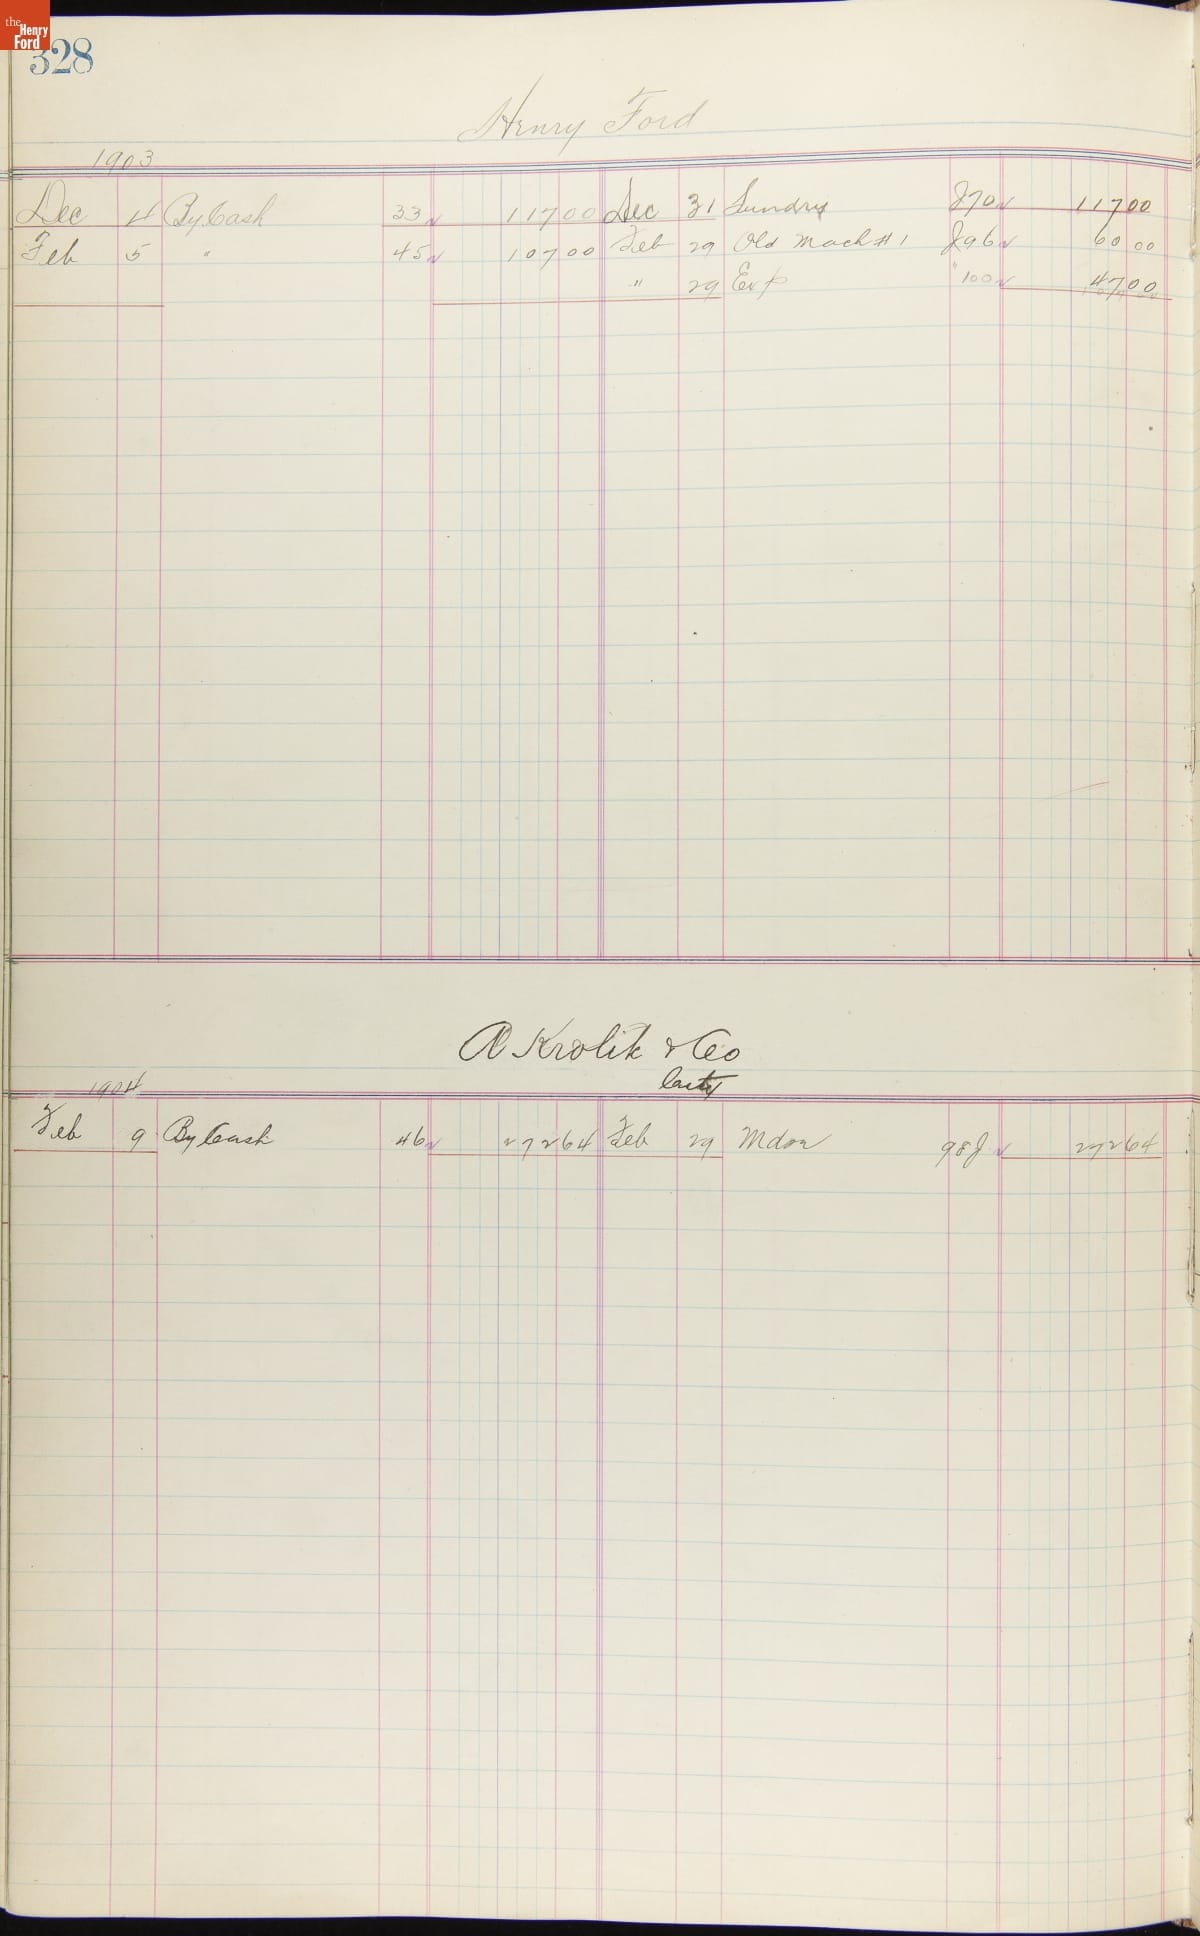 the Henry Ford
328
Henry Ford
1903
Dec 4 By Cash 33 117 00 Dec 31 Sundry J70 117 00
Feb 5 " 45 107 00 Feb 29 Old Mach #1 J96 60 00
" 29 Exp "100 47 00
A Krolik & Co
City
1904
Feb 9 By Cash 46 272 64 Feb 29 Mdse 98J 272 64